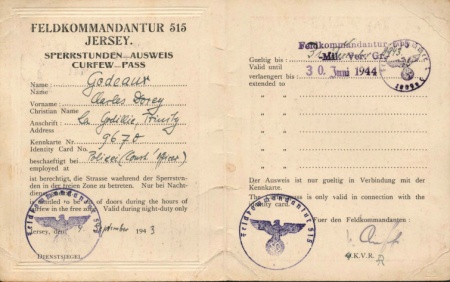 FELDKOMMANDANTUR 515
JERSEY.
SPERRSTUNDEN-AUSWEIS
CURFEW-PASS
Name : Godeaux
Name
Vorname : Charles Dorey
Christian Name
Anschrift : La Godillie, Trinity
Address
Kennkarte Nr. 9670
Identity Card No.
beschaeftigt bei Polices (Court Officer)
employed at
ist berechtigt, die Strasse waehrend der Sperrstun-
den in der freien Zone zu betreten. Nur bei Nacht-
dienst
to be out of doors during the hours of
curfew in the free Valid during night-duty only
Jersey, den September 1943
DIENSTSIEGEL
Feldkommandantur 515
Gueltig bis : 31 1943
Valid until
Feldkommandantur 515
Mil. Ver. Gr.
verlaengert bis : 30. Juni 1944
extended to
" "
" "
" "
" "
" "
" "
Der Ausweis ist nur gueltig in Verbindung mit der
Kennkarte.
The is only valid in connection with the
card.
Fuer den Feldkommandanten :
Feldkommandantur 515
K.V.R.